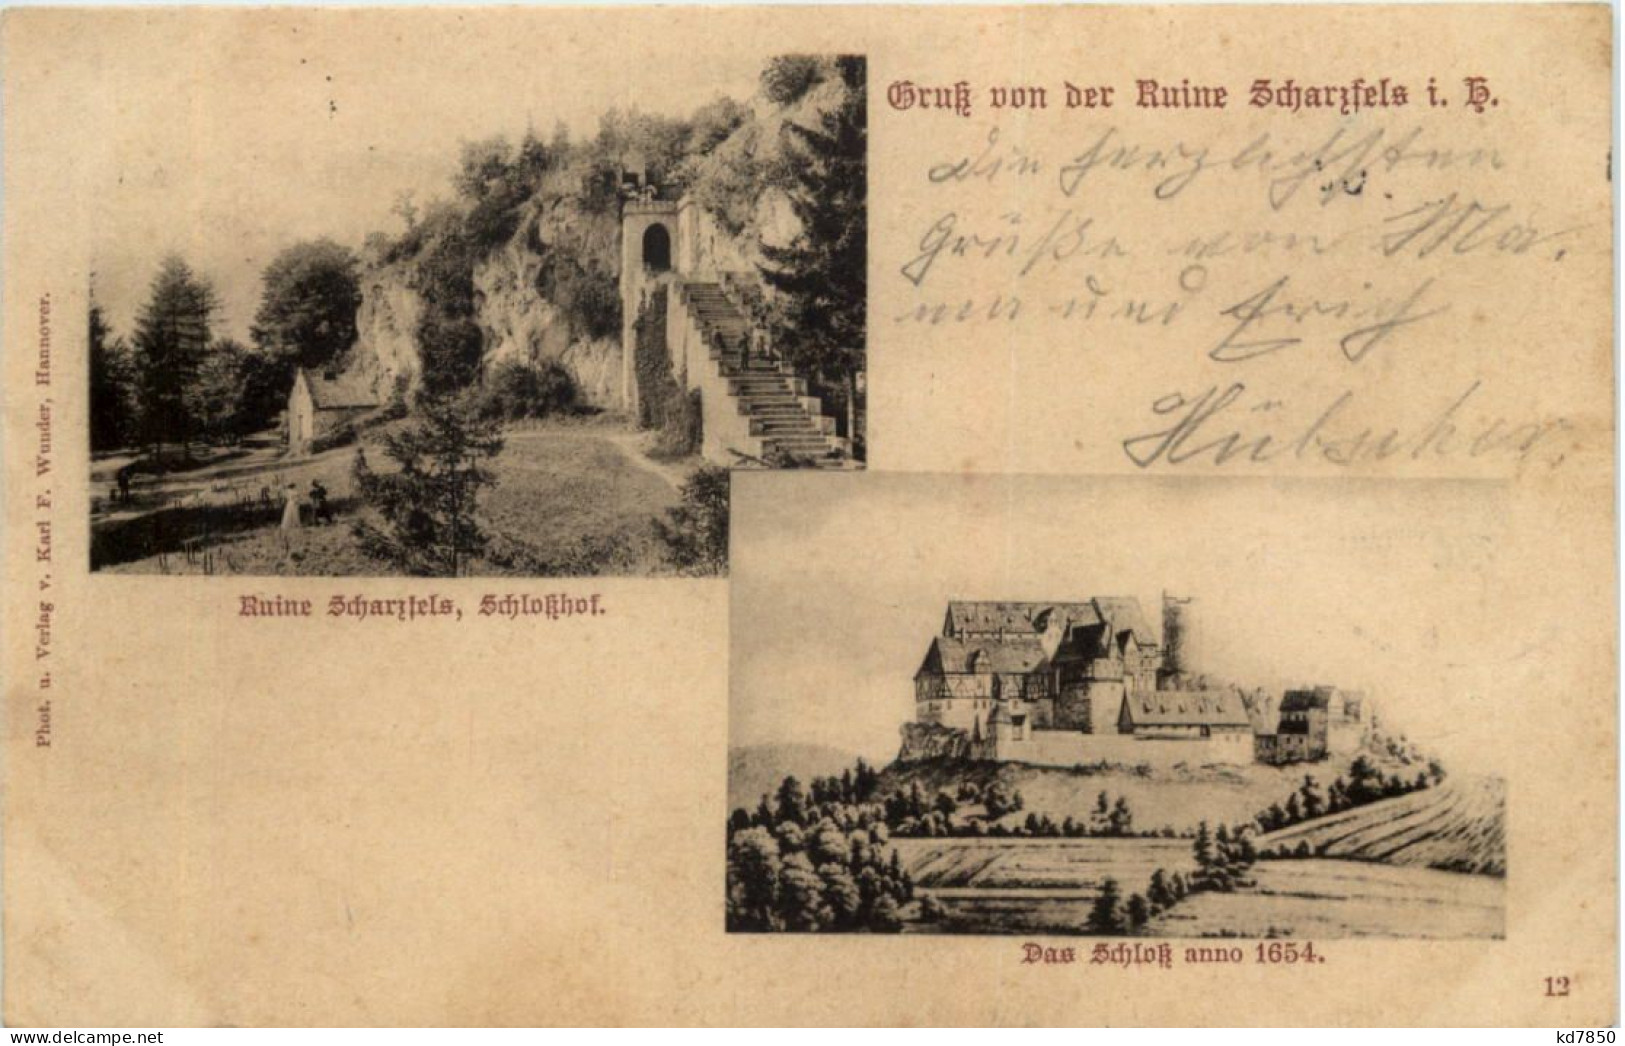 Gruß von der Ruine Scharzfels i. H.
Die herzlichsten
Grüße von Ma.
und Erich
Hübscher.
Phot. u. Verlag v. Karl F. Wunder, Hannover.
Ruine Scharzfels, Schloßhof.
Das Schloß anno 1654.
12
delcampe.net
kd7850